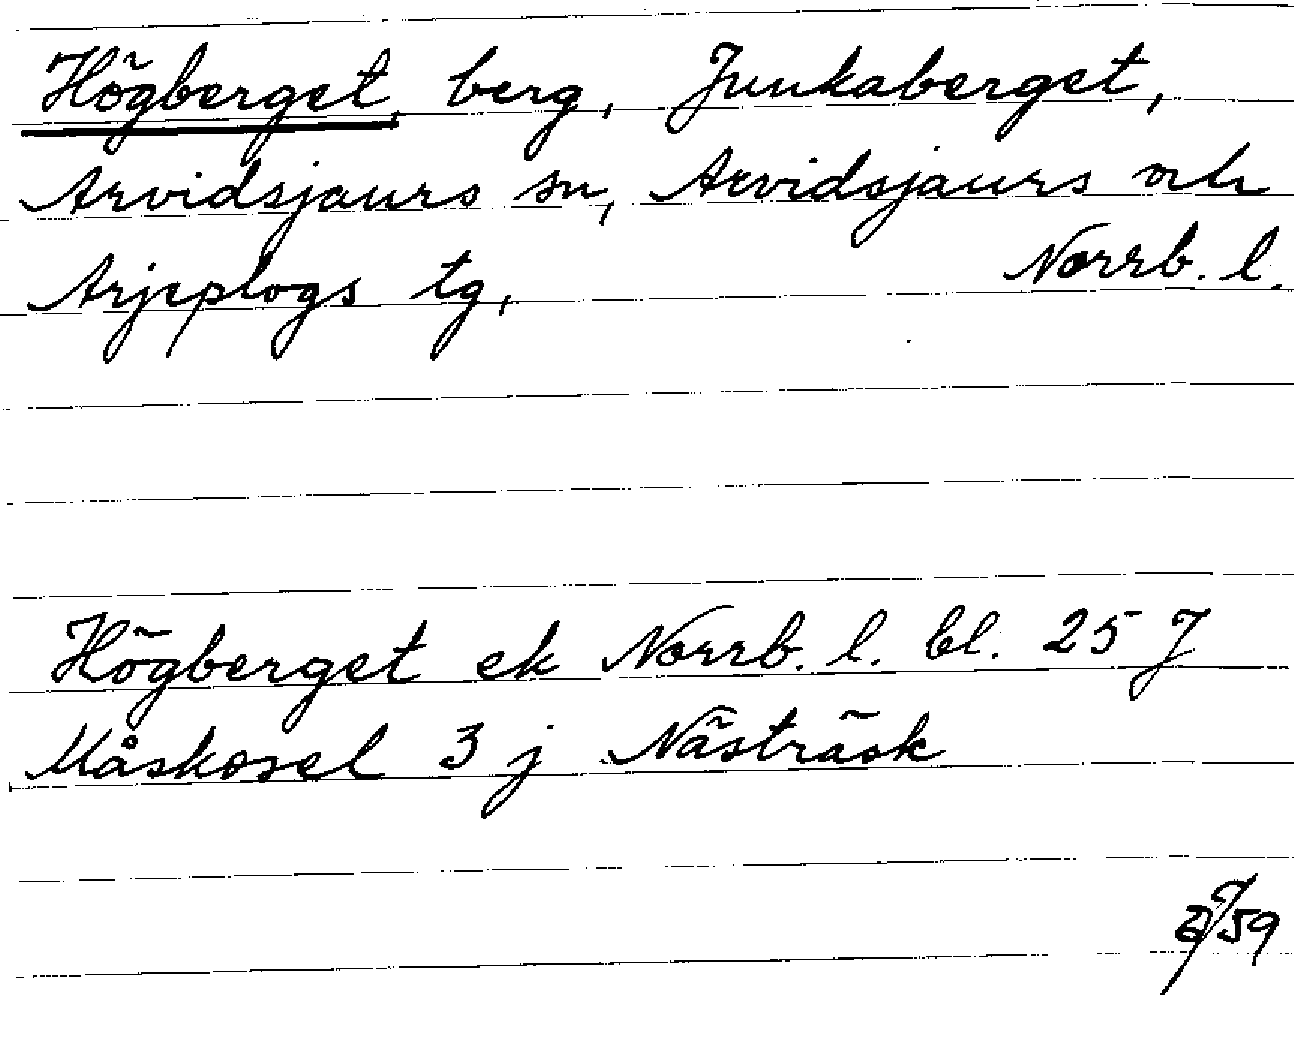 Högberget, berg, Junkaberget,
Arvidsjaurs sn, Arvidsjaurs och
Arjeplogs tg, Norrb. l.
Högberget ek Norrb. l. bl. 25 J
Måskosel 3 j Näströsk